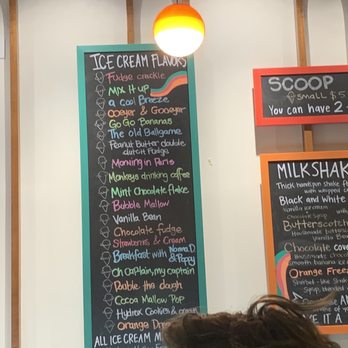 ICE CREAM FLAVORS
Fudge crackle
Mix it up
a Cool Breeze
Ooeyer & Gooeyer
Go Go Bananas
The old Ballgame
Peanut Butter double
dutch Fudge
Morning in Paris
Monkeys drinking coffee
Mint Chocolate Flake
Bubble Mallow
Vanilla Bean
Chocolate fudge
Strawberries & Cream
Breakfast with Norma D
& Poppy
oh Captain, my captain
Rubie the dough
Cocoa Mallow Pop
Hydrox Cookies & Cream
Orange
ALL ICE CREAM
SCOOP
Small $5
You can have 2
MILKSHAK
Thick handspun Shake
with whipped
Black and White
Vanilla ice cream
Chocolate Syrup
Butterscotch
Vanilla
Chocolate Cove
Smooth banana
Orange Freez
Sherbet-like Shak
syrup, blended
E IT A